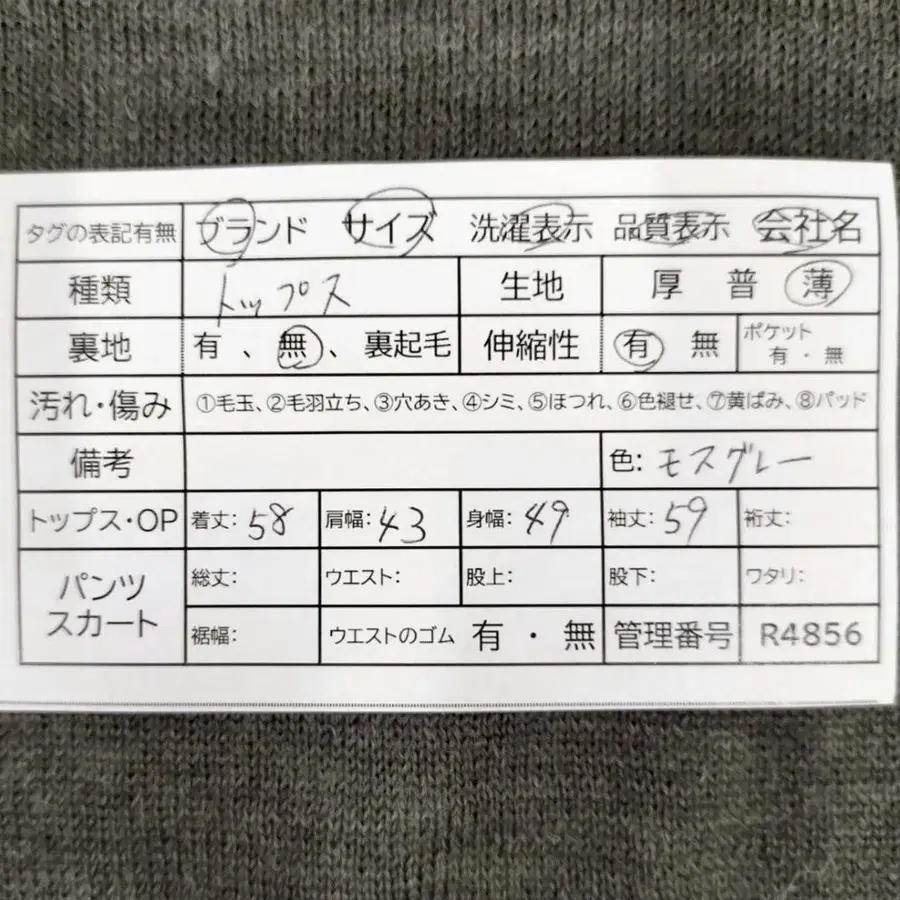 タグの表記有無 ブランド サイズ 洗濯表示 品質表示 会社名
種類 トップス 生地 厚 普 薄
裏地 有、無、裏起毛 伸縮性 有 無 ポケット 有・無
汚れ・傷み ①毛玉、②毛羽立ち、③穴あき、④シミ、⑤ほつれ、⑥色褪せ、⑦黄ばみ、⑧パッド
備考 色: モスグレー
トップス・OP 着丈: 58 肩幅: 43 身幅: 49 袖丈: 59 裄丈:
パンツ スカート 総丈: ウエスト: 股上: 股下: ワタリ:
裾幅: ウエストのゴム 有・無 管理番号 R4856